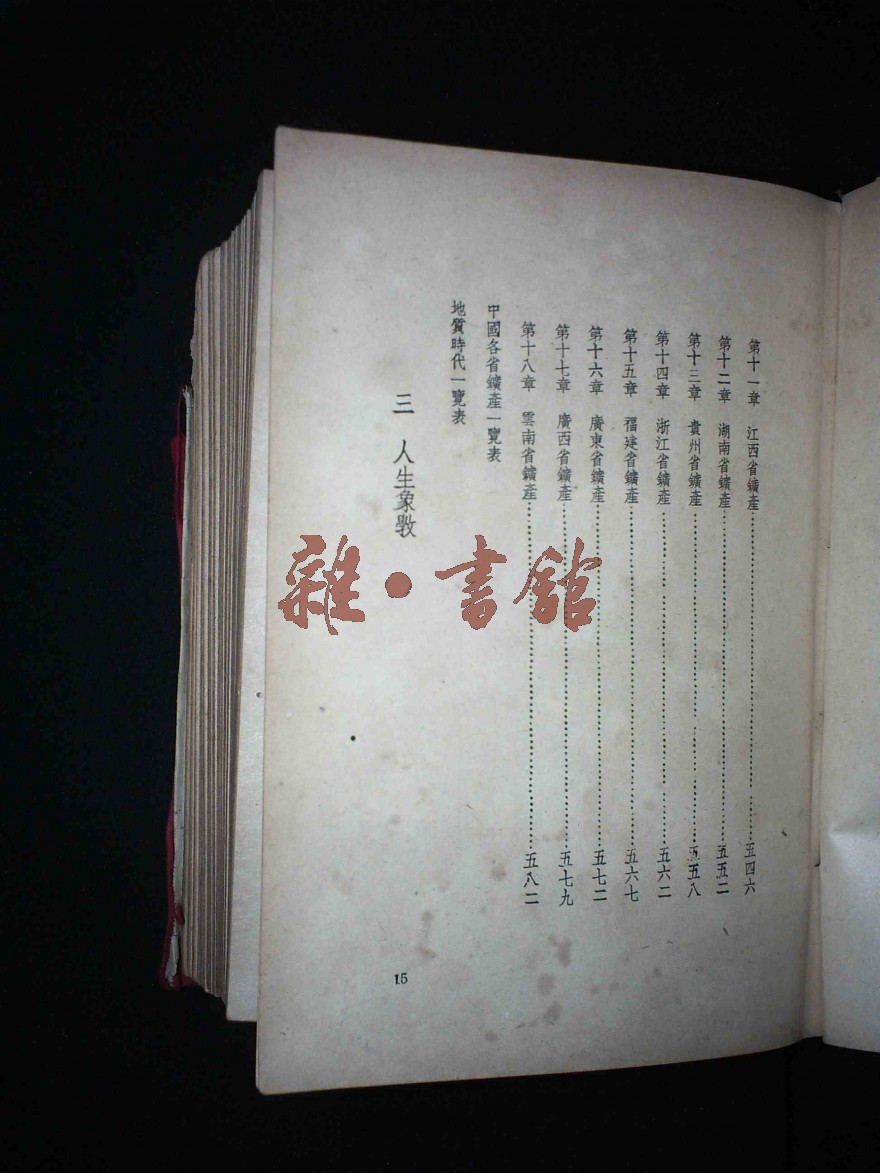 第十一章 江西省鑛產……五四六
第十二章 湖南省鑛產……五五二
第十三章 貴州省鑛產……五五八
第十四章 浙江省鑛產……五六二
第十五章 福建省鑛產……五六七
第十六章 廣東省鑛產……五七二
第十七章 廣西省鑛產……五七九
第十八章 雲南省鑛產……五八二
中國各省鑛產一覽表
地質時代一覽表
三 人生象斆
15
雜·書館